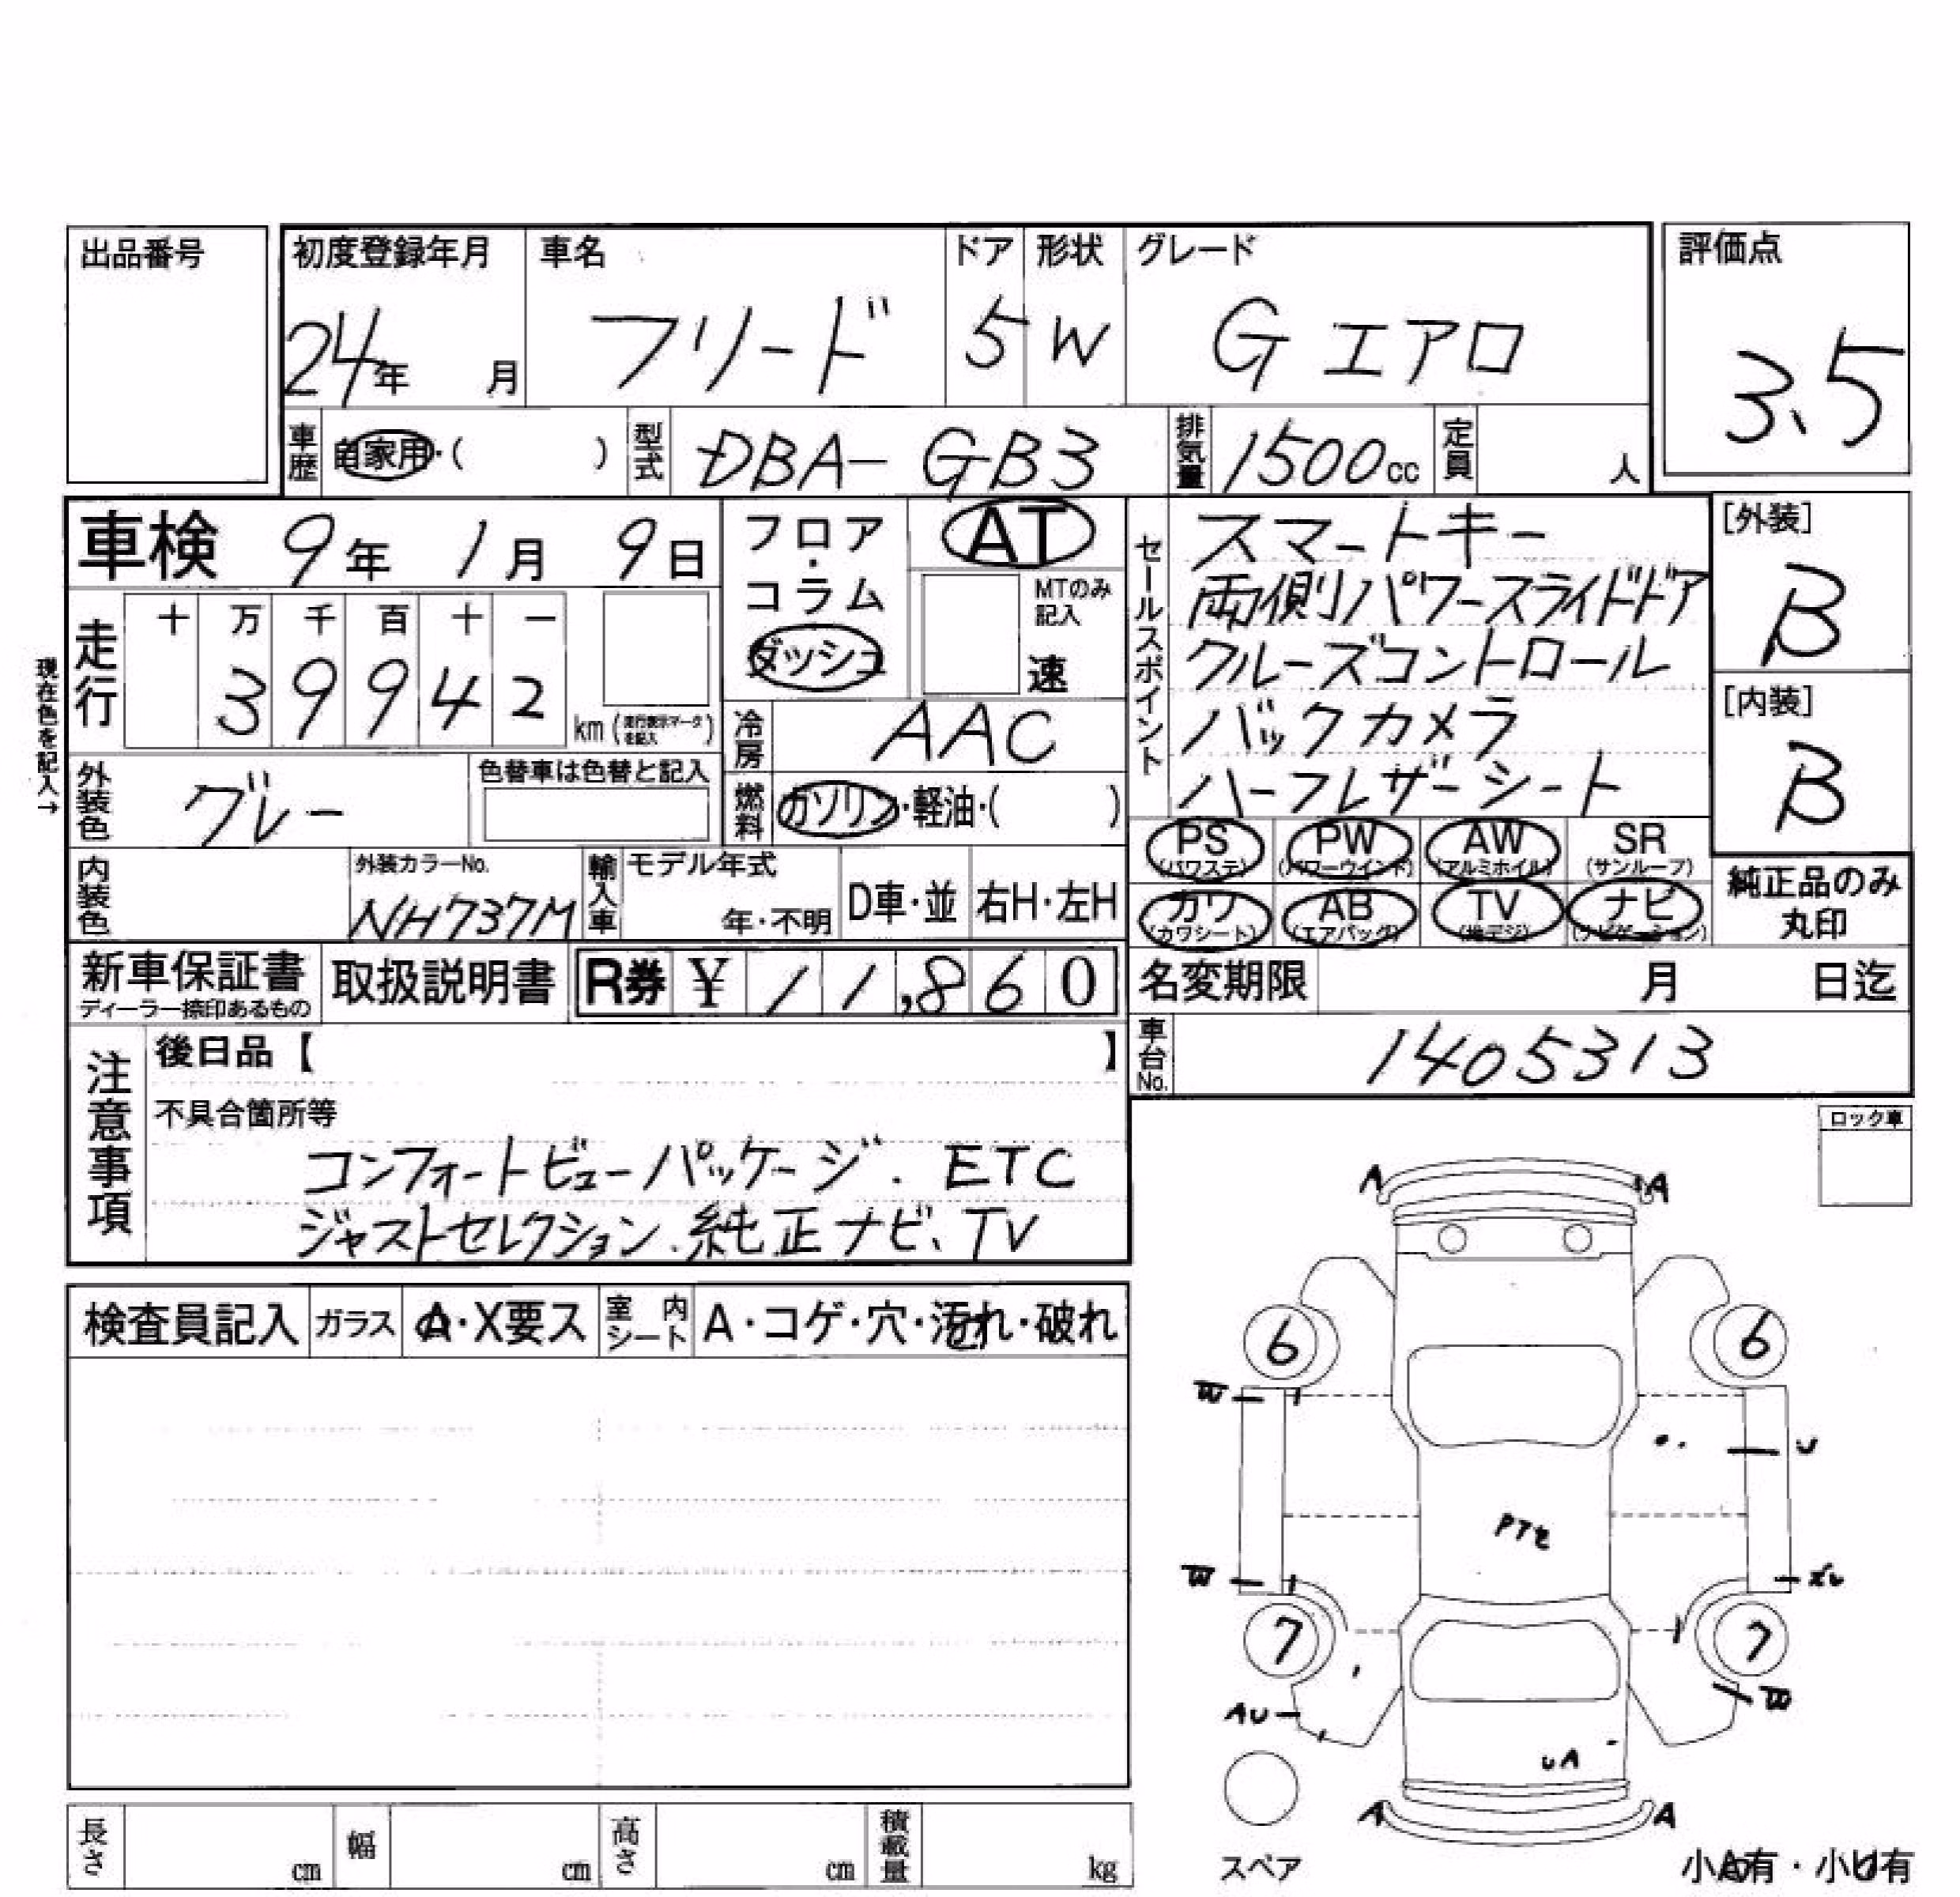 出品番号
初度登録年月 車名 ドア 形状 グレード 評価点
24年 月 フリード 5 W G エアロ 3.5
車歴 自家用・( ) 型式 DBA- GB3 排気量 1500cc 定員 人
車検 9年 1月 9日
フロア・コラム
ダッシュ
AT
MTのみ記入
速
セールスポイント
スマートキー
両側パワースライドドア
クルーズコントロール
バックカメラ
ハーフレザーシート
[外装]
B
[内装]
B
現在色を記入→
走行 十 万 千 百 十 一
3 9 9 4 2 km (走行表示マータを記入)
冷房 AAC
外装色 グレー 色替車は色替と記入
燃料 ガソリン・軽油・( )
PS (パワステ) PW (パワーウインド) AW (アルミホイル) SR (サンルーフ)
カワ (カワシート) AB (エアバッグ) TV (地デジ) ナビ (ナビゲーション)
純正品のみ
丸印
内装色 外装カラーNo. NH737M 輸入車 モデル年式 年・不明 D車・並 右H・左H
新車保証書 ディーラー捺印あるもの 取扱説明書 R券 ¥ 11,860
名変期限 月 日迄
車台No. 1405313
注意事項
後日品【 】
不具合箇所等
コンフォートビューパッケージ. ETC
ジャストセレクション.純正ナビ、TV
ロック車
検査員記入 ガラス A・X要ス 室内シート A・コゲ・穴・汚れ・破れ
A A
6 6
W U
PTセ
W
7 7
AU W
UA
A A
スペア
小A有・小U有
長さ cm 幅 cm 高さ cm 積載量 kg